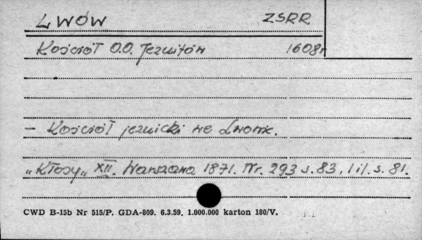 LWÓW ZSRR
Kościół O.O. Jezuitów 1608r
- Kościół jezuicki we Lwowie.
"Kłosy" XII. Warszawa 1871. Nr. 293 s. 83, 1 il. s. 81.
CWD B-15b Nr 515/P. GDA-809. 6.3.59. 1.000.000 karton 180/V.